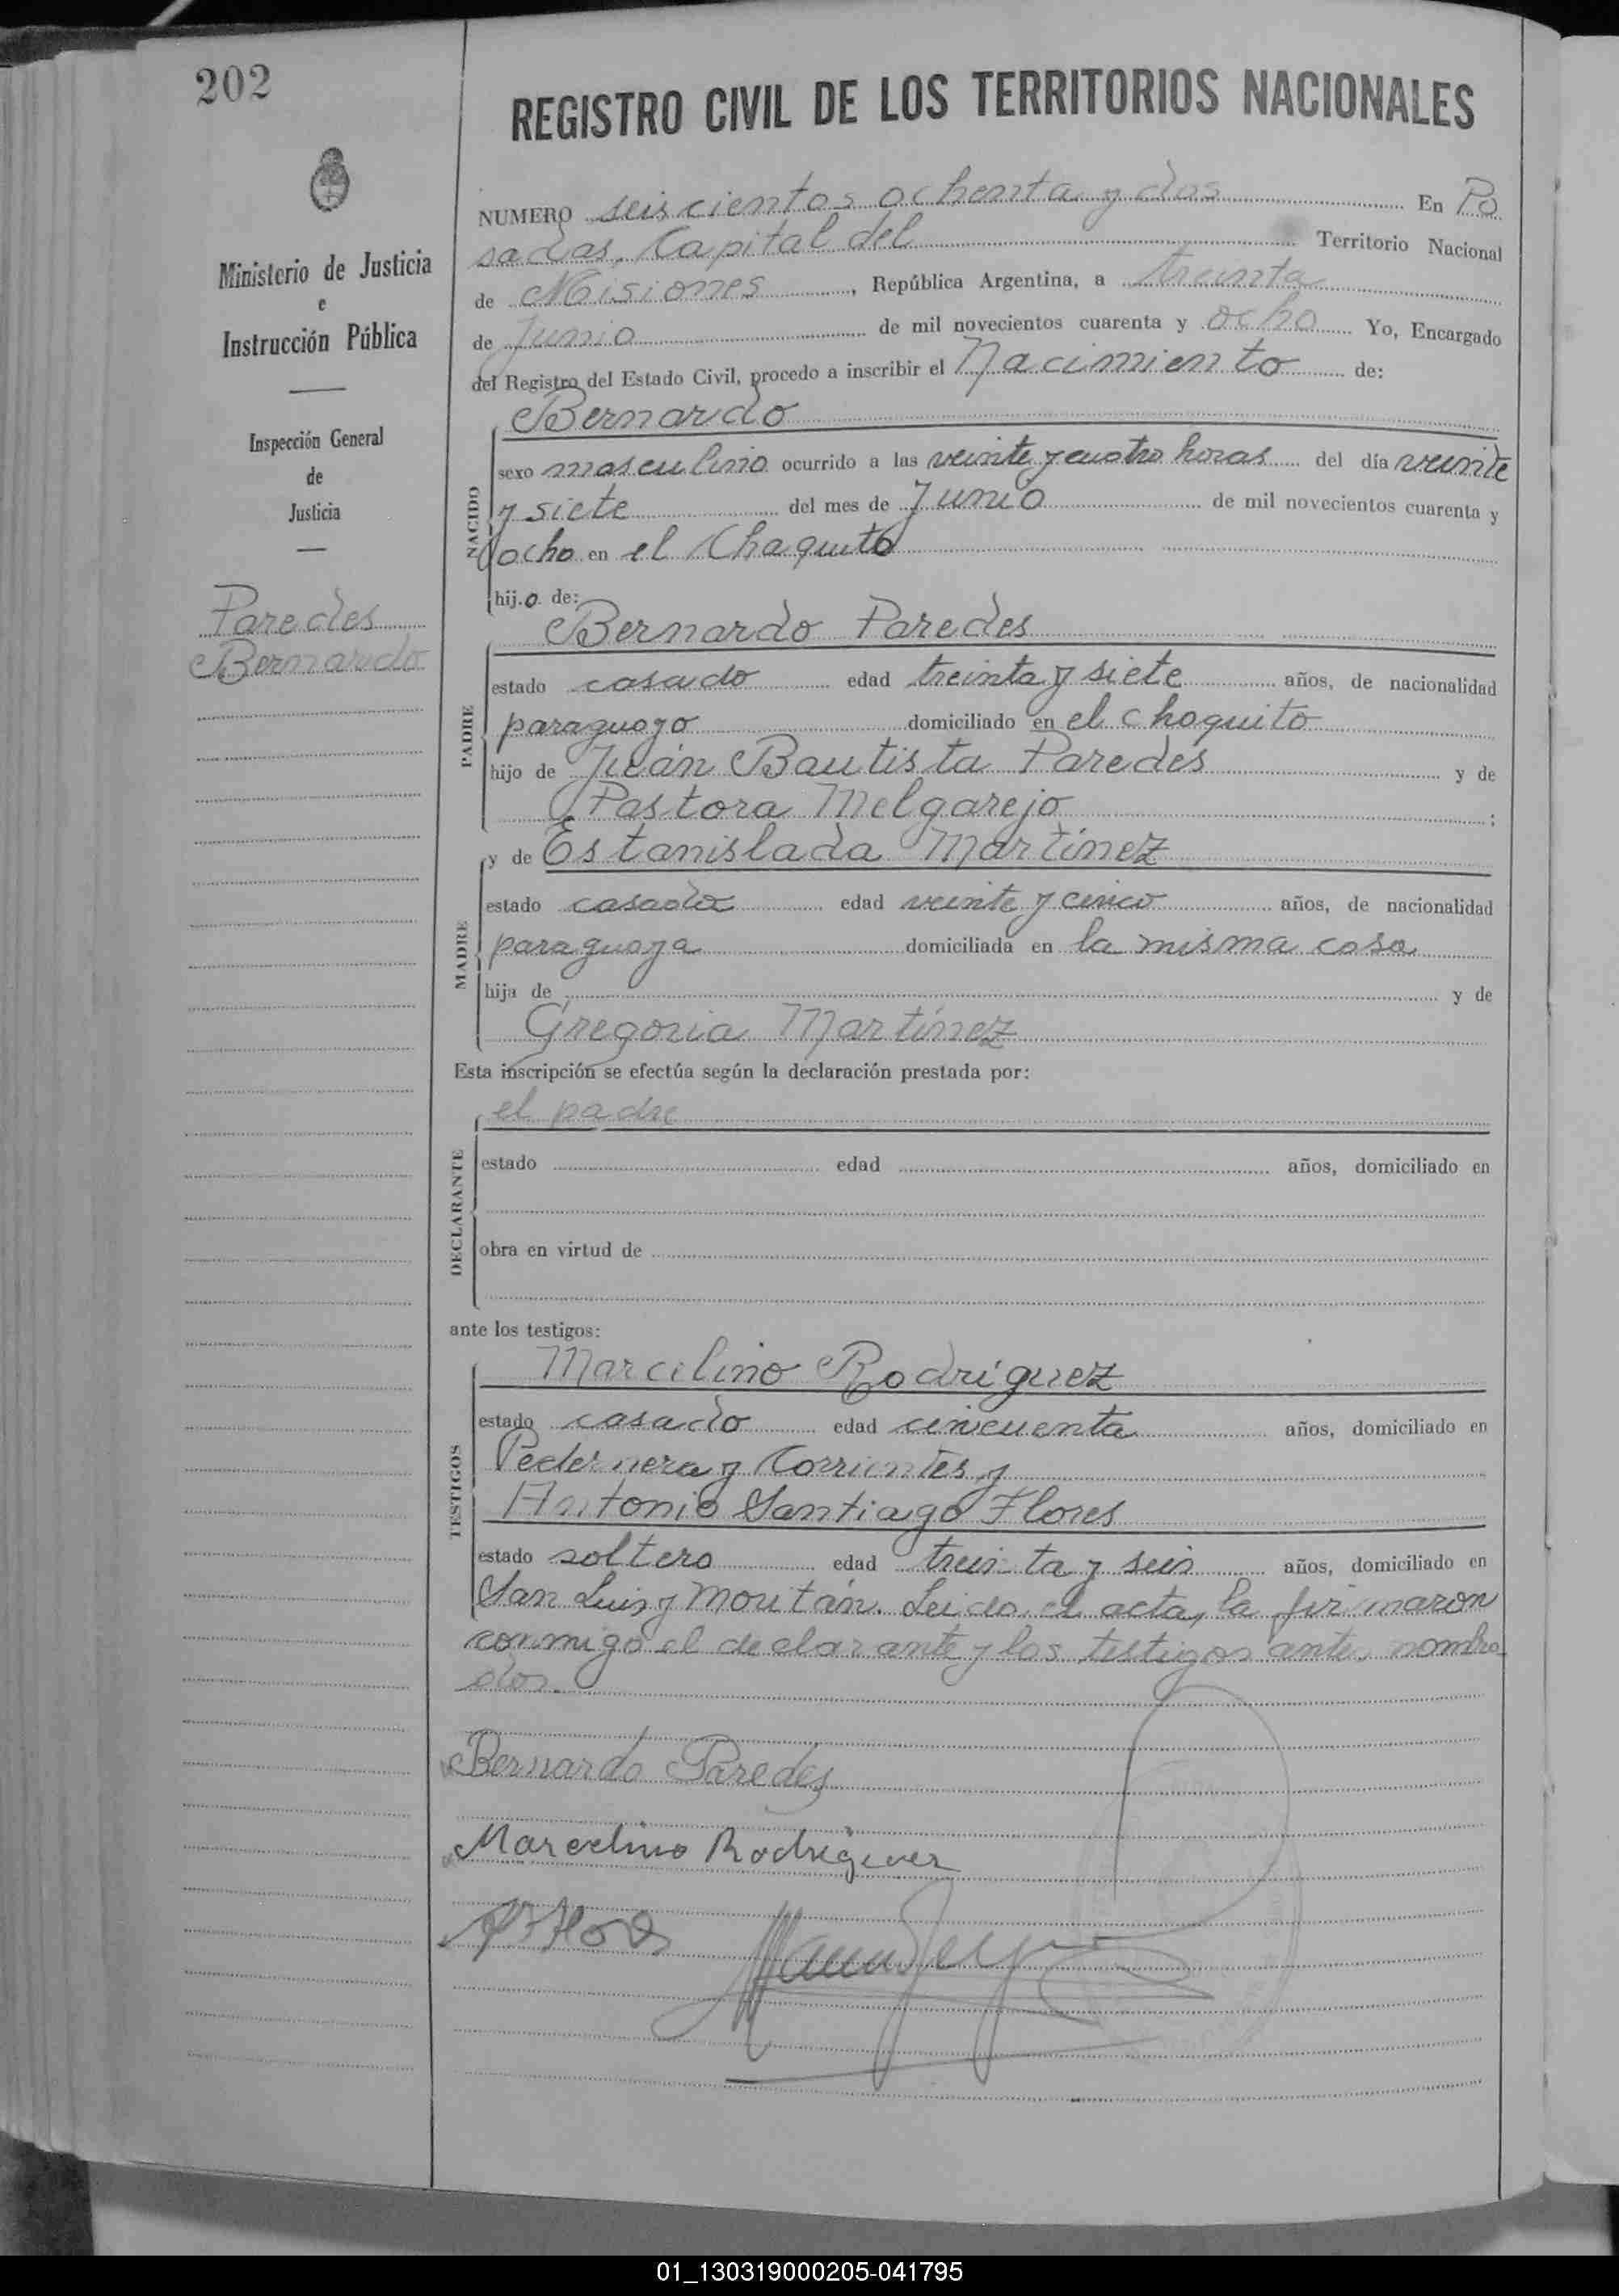 202
REGISTRO CIVIL DE LOS TERRITORIOS NACIONALES
Ministerio de Justicia
e
Instrucción Pública
Inspección General
de
Justicia
Paredes
Bernardo
NUMERO seiscientos ochenta y dos En Po
sadas, Capital del Territorio Nacional
de Misiones, República Argentina, a treinta
de Junio de mil novecientos cuarenta y ocho Yo, Encargado
del Registro del Estado Civil, procedo a inscribir el Nacimiento de:
NACIDO
Bernardo
sexo masculino ocurrido a las veinte y cuatro horas del día veinte
y siete del mes de Junio de mil novecientos cuarenta y
ocho en el Chaquito
hijo de:
PADRE
Bernardo Paredes
estado casado edad treinta y siete años, de nacionalidad
paraguayo domiciliado en el chaquito
hijo de Juán Bautista Paredes y de
Pastora Melgarejo ;
MADRE
y de Estanislada Martínez
estado casada edad veinte y cinco años, de nacionalidad
paraguaya domiciliada en la misma casa
hija de y de
Gregoria Martínez
Esta inscripción se efectúa según la declaración prestada por:
DECLARANTE
el padre
estado edad años, domiciliado en
obra en virtud de
ante los testigos:
TESTIGOS
Marcelino Rodríguez
estado casado edad cincuenta años, domiciliado en
Pedernera y Corrientes y
Antonio Santiago Flores
estado soltero edad treinta y seis años, domiciliado en
San Luis y Moritán. Leida el acta, la firmaron
conmigo el declarante y los testigos ante nombra
dos.
Bernardo Paredes
Marcelino Rodrigues
01_130319000205-041795